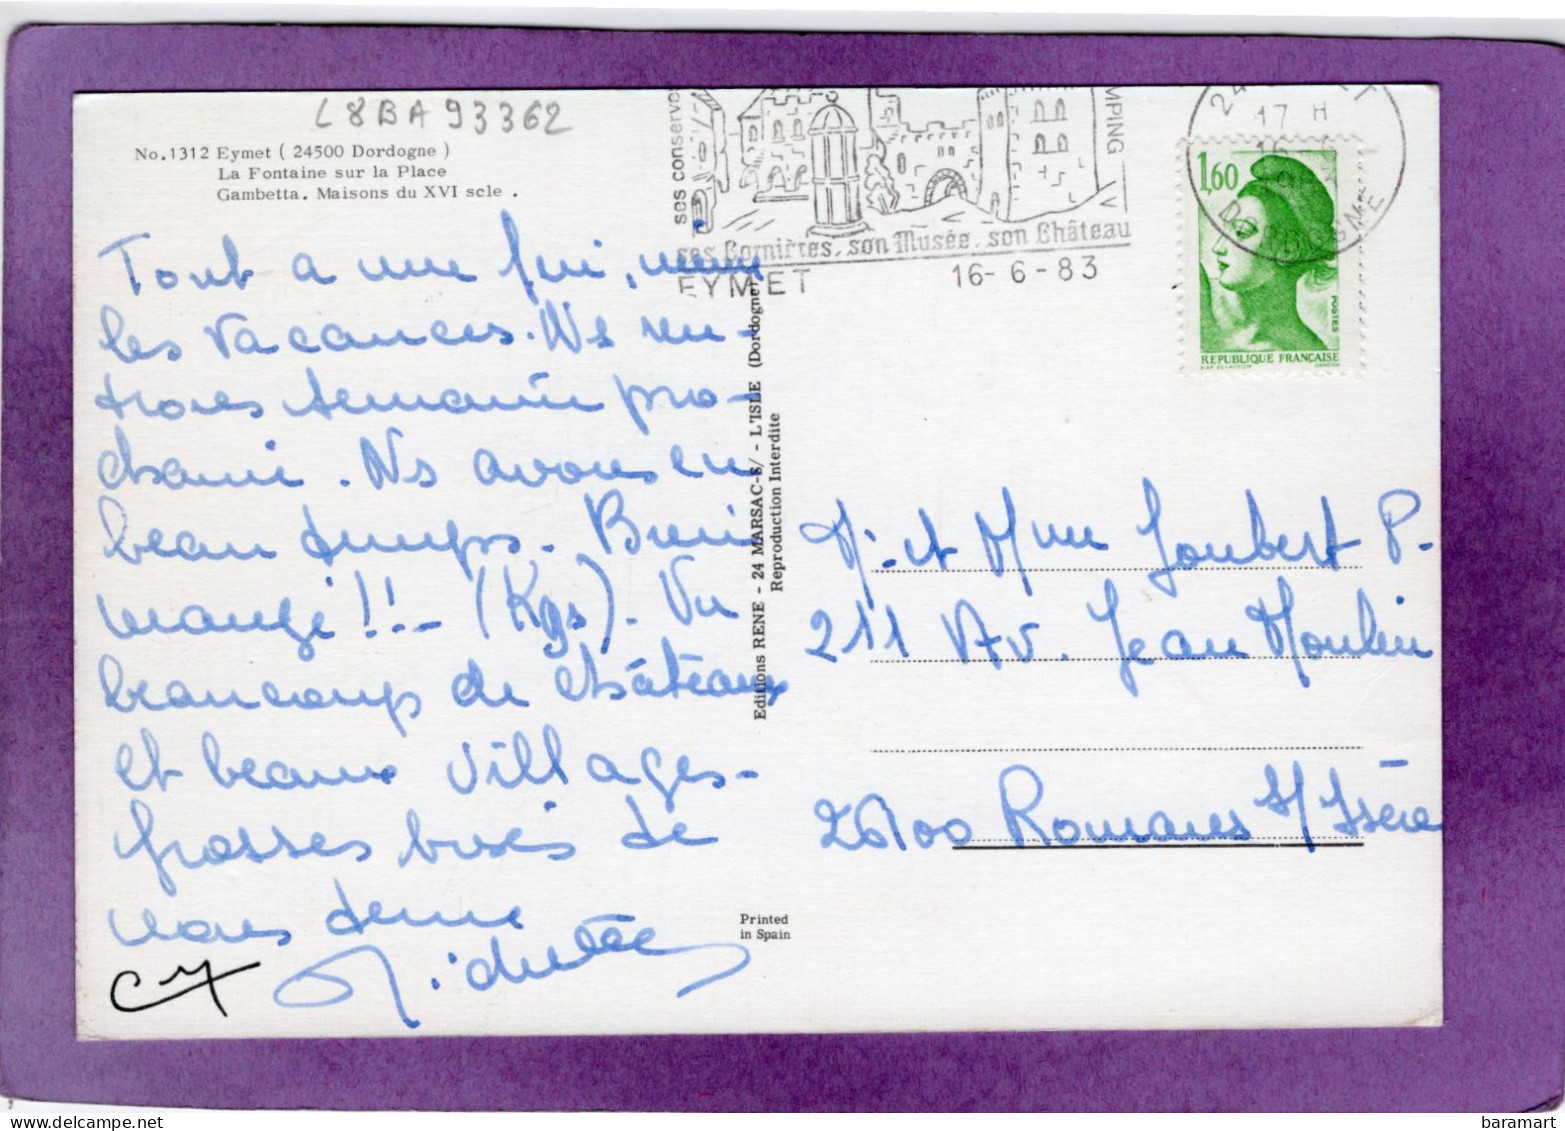 L8BA93362
No.1312 Eymet ( 24500 Dordogne )
La Fontaine sur la Place
Gambetta. Maisons du XVI scle .
Tout a une fin, même
les vacances. Ns ren-
trons semaine pro-
chaine. Ns avons eu
beau temps. Bien
mangé !!— (Kgs). Vu
beaucoup de châteaux
et beaux villages-
grosses bises de
nous deux
Editions RENE - 24 MARSAC-S/ - L'ISLE (Dordogne)
Reproduction Interdite
Printed
in Spain
ses conserve
MPING
ses Cornières, son Musée, son Château
EYMET 16-6-83
17 H
DORDOGNE
1,60
POSTES
REPUBLIQUE FRANÇAISE
D'AP. DELACROIX GANDON
Mr et Mme Joubert P.
211 Av. Jean Moulin
26100 Romans s/Isère
baramart